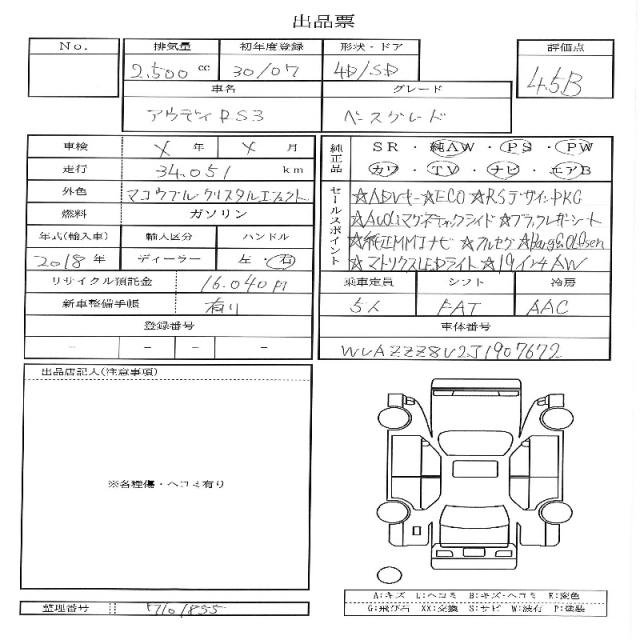 出品票
No.
排気量 初年度登録 形状・ドア 評価点
2,500 cc 30/07 4D/SD 4.5B
車名 グレード
アウディ RS3 ベースグレード
車検 X 年 X 月
走行 34,051 km
外色 マコウブル クリスタルエフェクト
燃料 ガソリン
年式(輸入車) 輸入区分 ハンドル
2018年 ディーラー 左・右
リサイクル預託金 16,040円
新車整備手帳 有り
登録番号
- - - -
純正品
SR ・ 純AW ・ PS ・ PW
カワ ・ TV ・ ナビ ・ エアB
セールスポイント
☆ADVキー☆ECO☆RSデザインPKG
☆Audiマグネティックライド☆ブラックレザーシート
☆純正MMIナビ ☆フルセグ☆Bang&Olufsen
☆マトリクスLEDライト ☆19インチAW
乗車定員 シフト 冷房
5人 FAT AAC
車体番号
WUAZZZ8V2J1907672
出品店記入(注意事項)
※各種傷・ヘコミ有り
A:キズ U:ヘコミ B:キズ・ヘコミ K:変色
G:飛び石 XX:交換 S:サビ W:波打 P:塗装
整理番号 7101855